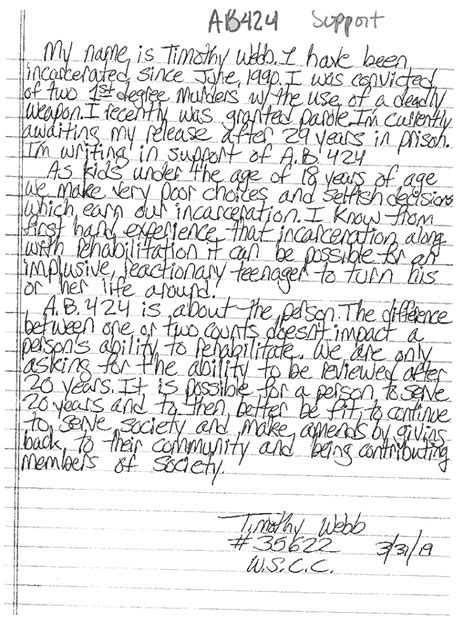 AB424 Support
My name is Timothy Webb. I have been
incarcerated since June, 1990. I was convicted
of two 1st degree Murders w/the use of a deadly
weapon. I recently was granted parole. I'm currently
awaiting my release after 29 years in prison.
I'm writing in support of A.B.424
As kids under the age of 18 years of age
we make very poor choices and selfish decisions
which earn our incarceration. I know from
first hand experience that incarceration along
with rehabilitation it can be possible for an
implusive, reactionary teenager to turn his
or her life around.
A.B.424 is about the person. The difference
between one or two counts doesn't impact a
person's ability to rehabilitate. We are only
asking for the ability to be reviewed after
20 years. It is possible for a person to serve
20 years and to then better be fit to continue
to serve society and make amends by giving
back to their community and being contributing
members of society.
Timothy Webb
#35622 3/31/19
W.S.C.C.